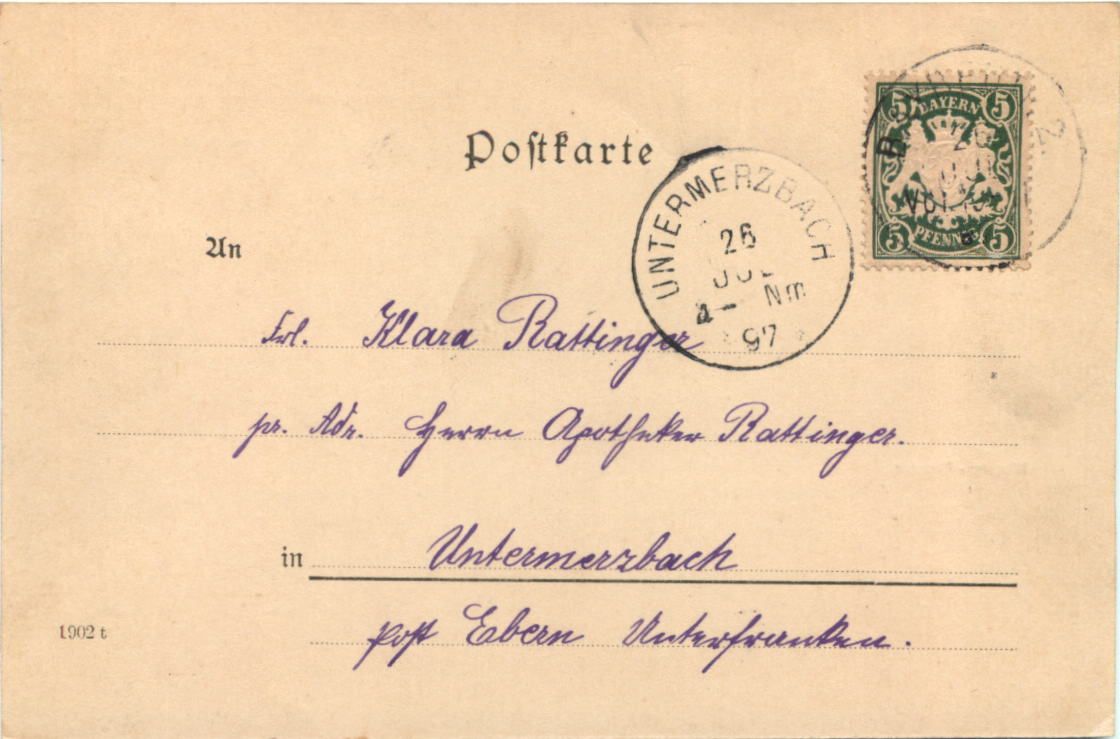 Postkarte
5 BAYERN 5
5 PFENNIG 5
UNTERMERZBACH
26
JUL
Nm
97
An
Frl. Klara Rattinger
pr. Adr. Herrn Apotheker Rattinger.
in Untermerzbach
post Ebern Unterfranken.
1902 t